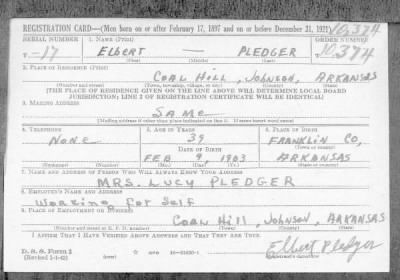 REGISTRATION CARD—(Men born on or after February 17, 1897 and on or before December 31, 1921) 10,374
SERIAL NUMBER 1. NAME (Print) ORDER NUMBER
T-17 Elbert — PLEDGER 10,374
2. PLACE OF RESIDENCE (Print)
COAL HILL, JOHNSON, ARKANSAS
(Number and street) (Town, township, village, or city) (County) (State)
[THE PLACE OF RESIDENCE GIVEN ON THE LINE ABOVE WILL DETERMINE LOCAL BOARD
JURISDICTION; LINE 2 OF REGISTRATION CERTIFICATE WILL BE IDENTICAL]
3. MAILING ADDRESS
SAME
[Mailing address if other than place indicated on line 2. If same insert word same]
4. TELEPHONE 5. AGE IN YEARS 6. PLACE OF BIRTH
NONE 39 FRANKLIN CO,
DATE OF BIRTH (Town or county)
FEB 9, 1903 ARKANSAS
(Exchange) (Number) (Mo.) (Day) (Yr.) (State or country)
7. NAME AND ADDRESS OF PERSON WHO WILL ALWAYS KNOW YOUR ADDRESS
MRS. LUCY PLEDGER
8. EMPLOYER'S NAME AND ADDRESS
Working for Self
9. PLACE OF EMPLOYMENT OR BUSINESS
COAL Hill, JOHNSON, ARKANSAS
(Number and street or R. F. D. number) (Town) (County) (State)
I AFFIRM THAT I HAVE VERIFIED ABOVE ANSWERS AND THAT THEY ARE TRUE.
D. S. S. Form 1 Elbert Pledger
(Revised 1-1-42) (over) (Registrant's signature)